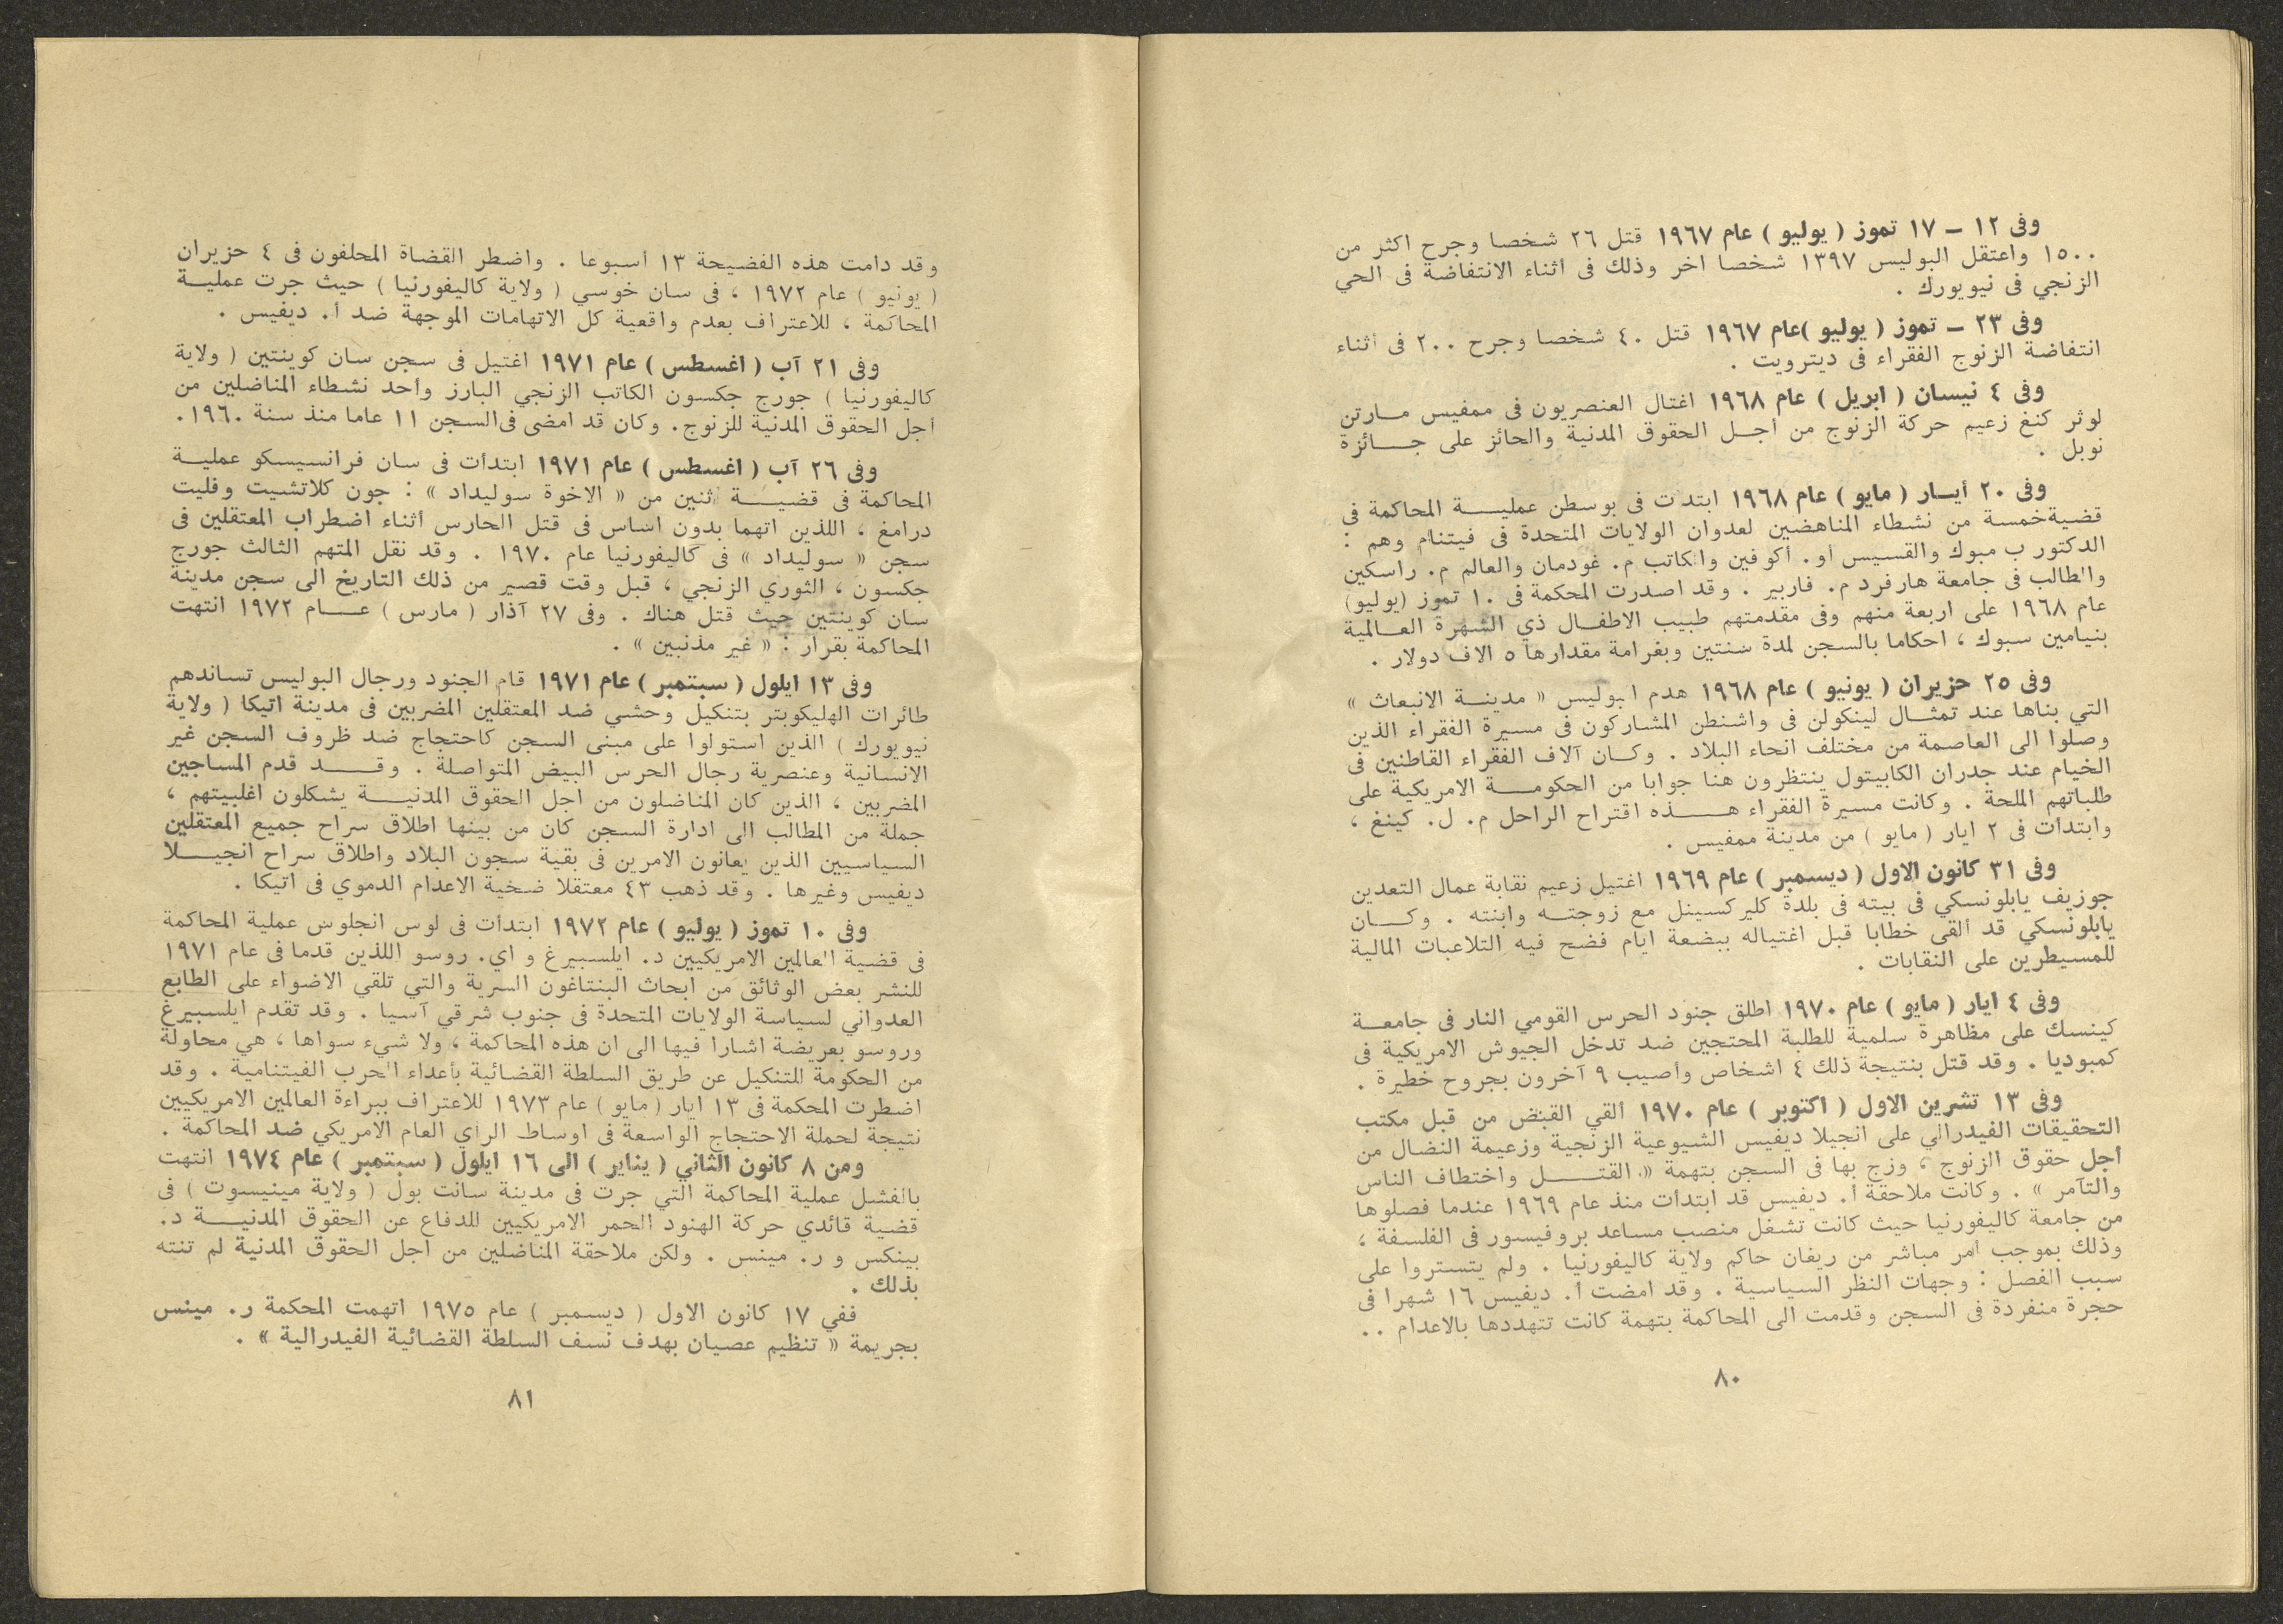 وفى ١٢ ــ ١٧ تموز ( يوليو ) عام ١٩٦٧ قتل ٢٦ شخصا وجرح اكثر من
١٥٠٠ واعتقل البوليس ١٣٩٧ شخصا اخر وذلك فى أثناء الانتفاضة فى الحي
الزنجي فى نيويورك .
وفى ٢٣ ــ تموز ( يوليو )عام ١٩٦٧ قتل ٤٠ شخصا وجرح ٢٠٠ فى أثناء
انتفاضة الزنوج الفقراء فى ديترويت .
وفى ٤ نيسان ( ابريل ) عام ١٩٦٨ اغتال العنصريون فى ممفيس مــارتن
لوثر كنغ زعيم حركة الزنوج من أجــل الحقوق المدنية والحائز على جــــائزة
نوبل .
وفى ٢٠ أيــار ( مايو ) عام ١٩٦٨ ابتدأت فى بوسطن عمليــــة المحاكمة في
قضيةخمسة من نشطاء المناهضين لعدوان الولايات المتحدة فى فيتنام وهم :
الدكتور ب مبوك والقسيس أو. أكوفين والكاتب م. غودمان والعالم م. راسكين
والطالب فى جامعة هارفرد م. فاربير . وقد اصدرت المحكمة فى ١٠ تموز (يوليو)
عام ١٩٦٨ على اربعة منهم وفى مقدمتهم طبيب الاطفــال ذي الشهرة العــالمية
بنيامين سبوك ، احكاما بالسجن لمدة سنتين وبغرامة مقدارها ٥ الاف دولار .
وفى ٢٥ حزيران ( يونيو ) عام ١٩٦٨ هدم البوليس « مدينــة الانبعاث »
التي بناها عند تمثــال لينكولن فى واشنطن المشاركون فى مسيرة الفقراء الذين
وصلوا الى العاصمة من مختلف انحاء البلاد . وكــان آلاف الفقراء القاطنين فى
الخيام عند جدران الكابيتول ينتظرون هنا جوابا من الحكومــــة الامريكية على
طلباتهم الملحة . وكانت مسيرة الفقراء هـــــذه اقتراح الراحل م. ل. كينغ ،
وابتدأت فى ٢ ايار ( مايو ) من مدينة ممفيس .
وفى ٣١ كانون الاول ( ديسمبر ) عام ١٩٦٩ اغتيل زعيم نقابة عمال التعدين
جوزيف يابلونسكي فى بيته فى بلدة كليركسينل مع زوجتــه وابنته . وكــــان
يابلونسكي قد ألقى خطابا قبل اغتياله ببضعة ايام فضح فيه التلاعبات المالية
للمسيطرين على النقابات .
وفى ٤ ايار ( مايو ) عام ١٩٧٠ اطلق جنود الحرس القومي النار فى جامعــة
كينسك على مظاهرة سلمية للطلبة المحتجين ضد تدخل الجيوش الامريكية فى
كمبوديا . وقد قتل بنتيجة ذلك ٤ اشخاص وأصيب ٩ آخرون بجروح خطيرة .
وفى ١٣ تشرين الاول ( اكتوبر ) عام ١٩٧٠ ألقي القبض من قبل مكتب
التحقيقات الفيدرالي على انجيلا ديفيس الشيوعية الزنجية وزعيمة النضال من
أجل حقوق الزنوج ، وزج بها فى السجن بتهمة « القتـــــل واختطاف الناس
والتآمر » . وكانت ملاحقة أ. ديفيس قد ابتدأت منذ عام ١٩٦٩ عندما فصلوها
من جامعة كاليفورنيا حيث كانت تشغل منصب مساعد بروفيسور فى الفلسفة ،
وذلك بموجب أمر مباشر من ريغان حاكم ولاية كاليفورنيا . ولم يتستروا على
سبب الفصل : وجهات النظر السياسية . وقد امضت أ. ديفيس ١٦ شهرا فى
حجرة منفردة فى السجن وقدمت الى المحاكمة بتهمة كانت تتهددها بالاعدام ..
٨٠
وقد دامت هذه الفضيحة ١٣ أسبوعا . واضطر القضاة المحلفون فى ٤ حزيران
( يونيو ) عام ١٩٧٢ ، فى سان خوسي ( ولاية كاليفورنيا ) حيث جرت عمليــة
المحاكمة ، للاعتراف بعدم واقعية كل الاتهامات الموجهة ضد أ. ديفيس .
وفى ٢١ آب ( اغسطس ) عام ١٩٧١ اغتيل فى سجن سان كوينتين ( ولاية
كاليفورنيا ) جورج جكسون الكاتب الزنجي البارز وأحد نشطاء المناضلين من
أجل الحقوق المدنية للزنوج. وكان قد امضى فىالسجن ١١ عاما منذ سنة ١٩٦٠.
وفى ٢٦ آب ( اغسطس ) عام ١٩٧١ ابتدأت فى سان فرانسيسكو عمليــة
المحاكمة فى قضيــــة اثنين من « الاخوة سوليداد » : جون كلاتشيت وفليت
درامغ ، اللذين اتهما بدون اساس فى قتل الحارس أثناء اضطراب المعتقلين فى
سجن « سوليداد » فى كاليفورنيا عام ١٩٧٠ . وقد نقل المتهم الثالث جورج
جكسون ، الثوري الزنجي ، قبل وقت قصير من ذلك التاريخ الى سجن مدينة
سان كوينتين حيث قتل هناك . وفى ٢٧ آذار ( مارس ) عـــام ١٩٧٢ انتهت
المحاكمة بقرار : « غير مذنبين » .
وفى ١٣ ايلول ( سبتمبر ) عام ١٩٧١ قام الجنود ورجال البوليس تساندهم
طائرات الهليكوبتر بتنكيل وحشي ضد المعتقلين المضربين فى مدينة اتيكا ( ولاية
نيويورك ) الذين استولوا على مبنى السجن كاحتجاج ضد ظروف السجن غير
الانسانية وعنصرية رجال الحرس البيض المتواصلة . وقــــد قدم المساجين
المضربين ، الذين كان المناضلون من اجل الحقوق المدنيــــة يشكلون اغلبيتهم ،
جملة من المطالب الى ادارة السجن كان من بينها اطلاق سراح جميع المعتقلين
السياسيين الذين يعانون الامرين فى بقية سجون البلاد واطلاق سراح انجيــــلا
ديفيس وغيرها . وقد ذهب ٤٣ معتقلا ضحية الاعدام الدموي فى اتيكا .
وفى ١٠ تموز ( يوليو ) عام ١٩٧٢ ابتدأت فى لوس انجلوس عملية المحاكمة
فى قضية العالمين الامريكيين د. ايلسبيرغ و اي. روسو اللذين قدما فى عام ١٩٧١
للنشر بعض الوثائق من ابحاث البنتاغون السرية والتي تلقي الاضواء على الطابع
العدواني لسياسة الولايات المتحدة فى جنوب شرقي آسيا . وقد تقدم ايلسبيرغ
وروسو بعريضة اشارا فيها الى ان هذه المحاكمة ، ولا شيء سواها ، هي محاولة
من الحكومة للتنكيل عن طريق السلطة القضائية بأعداء الحرب الفيتنامية . وقد
اضطرت المحكمة فى ١٣ ايار ( مايو ) عام ١٩٧٣ للاعتراف ببراءة العالمين الامريكيين
نتيجة لحملة الاحتجاج الواسعة فى اوساط الرأي العام الامريكي ضد المحاكمة .
ومن ٨ كانون الثاني ( يناير ) الى ١٦ ايلول ( سبتمبر ) عام ١٩٧٤ انتهت
بالفشل عملية المحاكمة التي جرت فى مدينة سانت بول ( ولاية مينيسوت ) فى
قضية قائدي حركة الهنود الحمر الامريكيين للدفاع عن الحقوق المدنيــــة د.
بينكس و ر. مينس . ولكن ملاحقة المناضلين من اجل الحقوق المدنية لم تنته
بذلك .
ففي ١٧ كانون الاول ( ديسمبر ) عام ١٩٧٥ اتهمت المحكمة ر. مينس
بجريمة « تنظيم عصيان بهدف نسف السلطة القضائية الفيدرالية » .
٨١